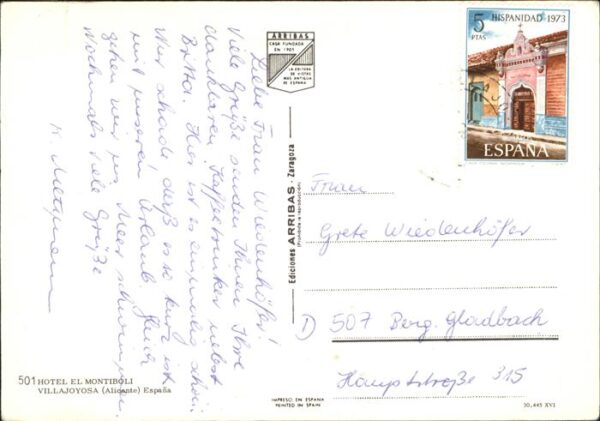 Liebe Frau Wiedenhöfer!
Viele Grüße senden Ihnen Ihre
dankbaren Kaffeetrinker nebst
Britta. Hier ist es einmalig schön.
Nur schade, daß es so kurz ist
mit unserem Urlaub. Gleich
gehen wir zum Meer schwimmen.
Nochmals viele Grüße
K.
501 HOTEL EL MONTIBOLI
VILLAJOYOSA (Alicante) España
ARRIBAS
CASA FUNDADA
EN 1905
LA EDITORA
DE VISTAS
MAS ANTIGUA
DE ESPAÑA
Ediciones ARRIBAS - Zaragoza
(Prohibida la reproducción)
IMPRESO EN ESPAÑA
PRINTED IN SPAIN
5
PTAS
HISPANIDAD 1973
ESPAÑA
Frau
Grete Wiedenhöfer
D 507 Berg. Gladbach
Hauptstraße 315
XVI